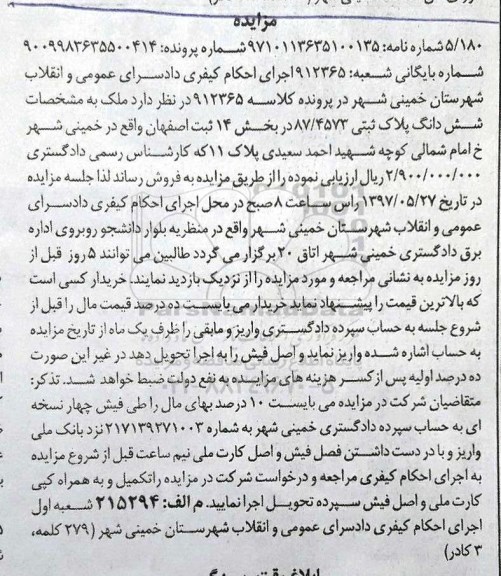 مزایده
۵/۱۸۰ شماره نامه: ۹۷۱۰۱۱۳۶۳۵۱۰۰۱۳۵ شماره پرونده: ۹۰۰۹۹۸۳۶۳۵۵۰۰۴۱۴
شماره بایگانی شعبه: ۹۱۲۳۶۵ اجرای احکام کیفری دادسرای عمومی و انقلاب
شهرستان خمینی شهر در پرونده کلاسه ۹۱۲۳۶۵ در نظر دارد ملک به مشخصات
شش دانگ پلاک ثبتی ۸۷/۴۵۷۳ در بخش ۱۴ ثبت اصفهان واقع در خمینی شهر
خ امام شمالی کوچه شهید احمد سعیدی پلاک ۱۱ که کارشناس رسمی دادگستری
۲/۹۰۰/۰۰۰/۰۰۰ ریال ارزیابی نموده را از طریق مزایده به فروش رساند لذا جلسه مزایده
در تاریخ ۱۳۹۷/۰۵/۲۷ راس ساعت ۸ صبح در محل اجرای احکام کیفری دادسرای
عمومی و انقلاب شهرستان خمینی شهر واقع در منظریه بلوار دانشجو روبروی اداره
برق دادگستری خمینی شهر اتاق ۲۰ برگزار می گردد طالبین می توانند ۵ روز قبل از
روز مزایده به نشانی مراجعه و مورد مزایده را از نزدیک بازدید نمایند. خریدار کسی است
که بالاترین قیمت را پیشنهاد نماید خریدار می بایست ده درصد قیمت مال را قبل از
شروع جلسه به حساب سپرده دادگستری واریز و مابقی را ظرف یک ماه از تاریخ مزایده
به حساب اشاره شده واریز نماید و اصل فیش را به اجرا تحویل دهد در غیر این صورت
ده درصد اولیه پس از کسر هزینه های مزایده به نفع دولت ضبط خواهد شد. تذکر:
متقاضیان شرکت در مزایده می بایست ۱۰ درصد بهای مال را طی فیش چهار نسخه
ای به حساب سپرده دادگستری خمینی شهر به شماره ۲۱۷۱۳۹۲۷۱۰۰۳ نزد بانک ملی
واریز و با در دست داشتن فصل فیش و اصل کارت ملی نیم ساعت قبل از شروع مزایده
به اجرای احکام کیفری مراجعه و درخواست شرکت در مزایده راتکمیل و به همراه کپی
کارت ملی و اصل فیش سپرده تحویل اجرا نمایید. م الف: ۲۱۵۲۹۴ شعبه اول
اجرای احکام کیفری دادسرای عمومی و انقلاب شهرستان خمینی شهر (۲۷۹ کلمه،
۳ کادر)